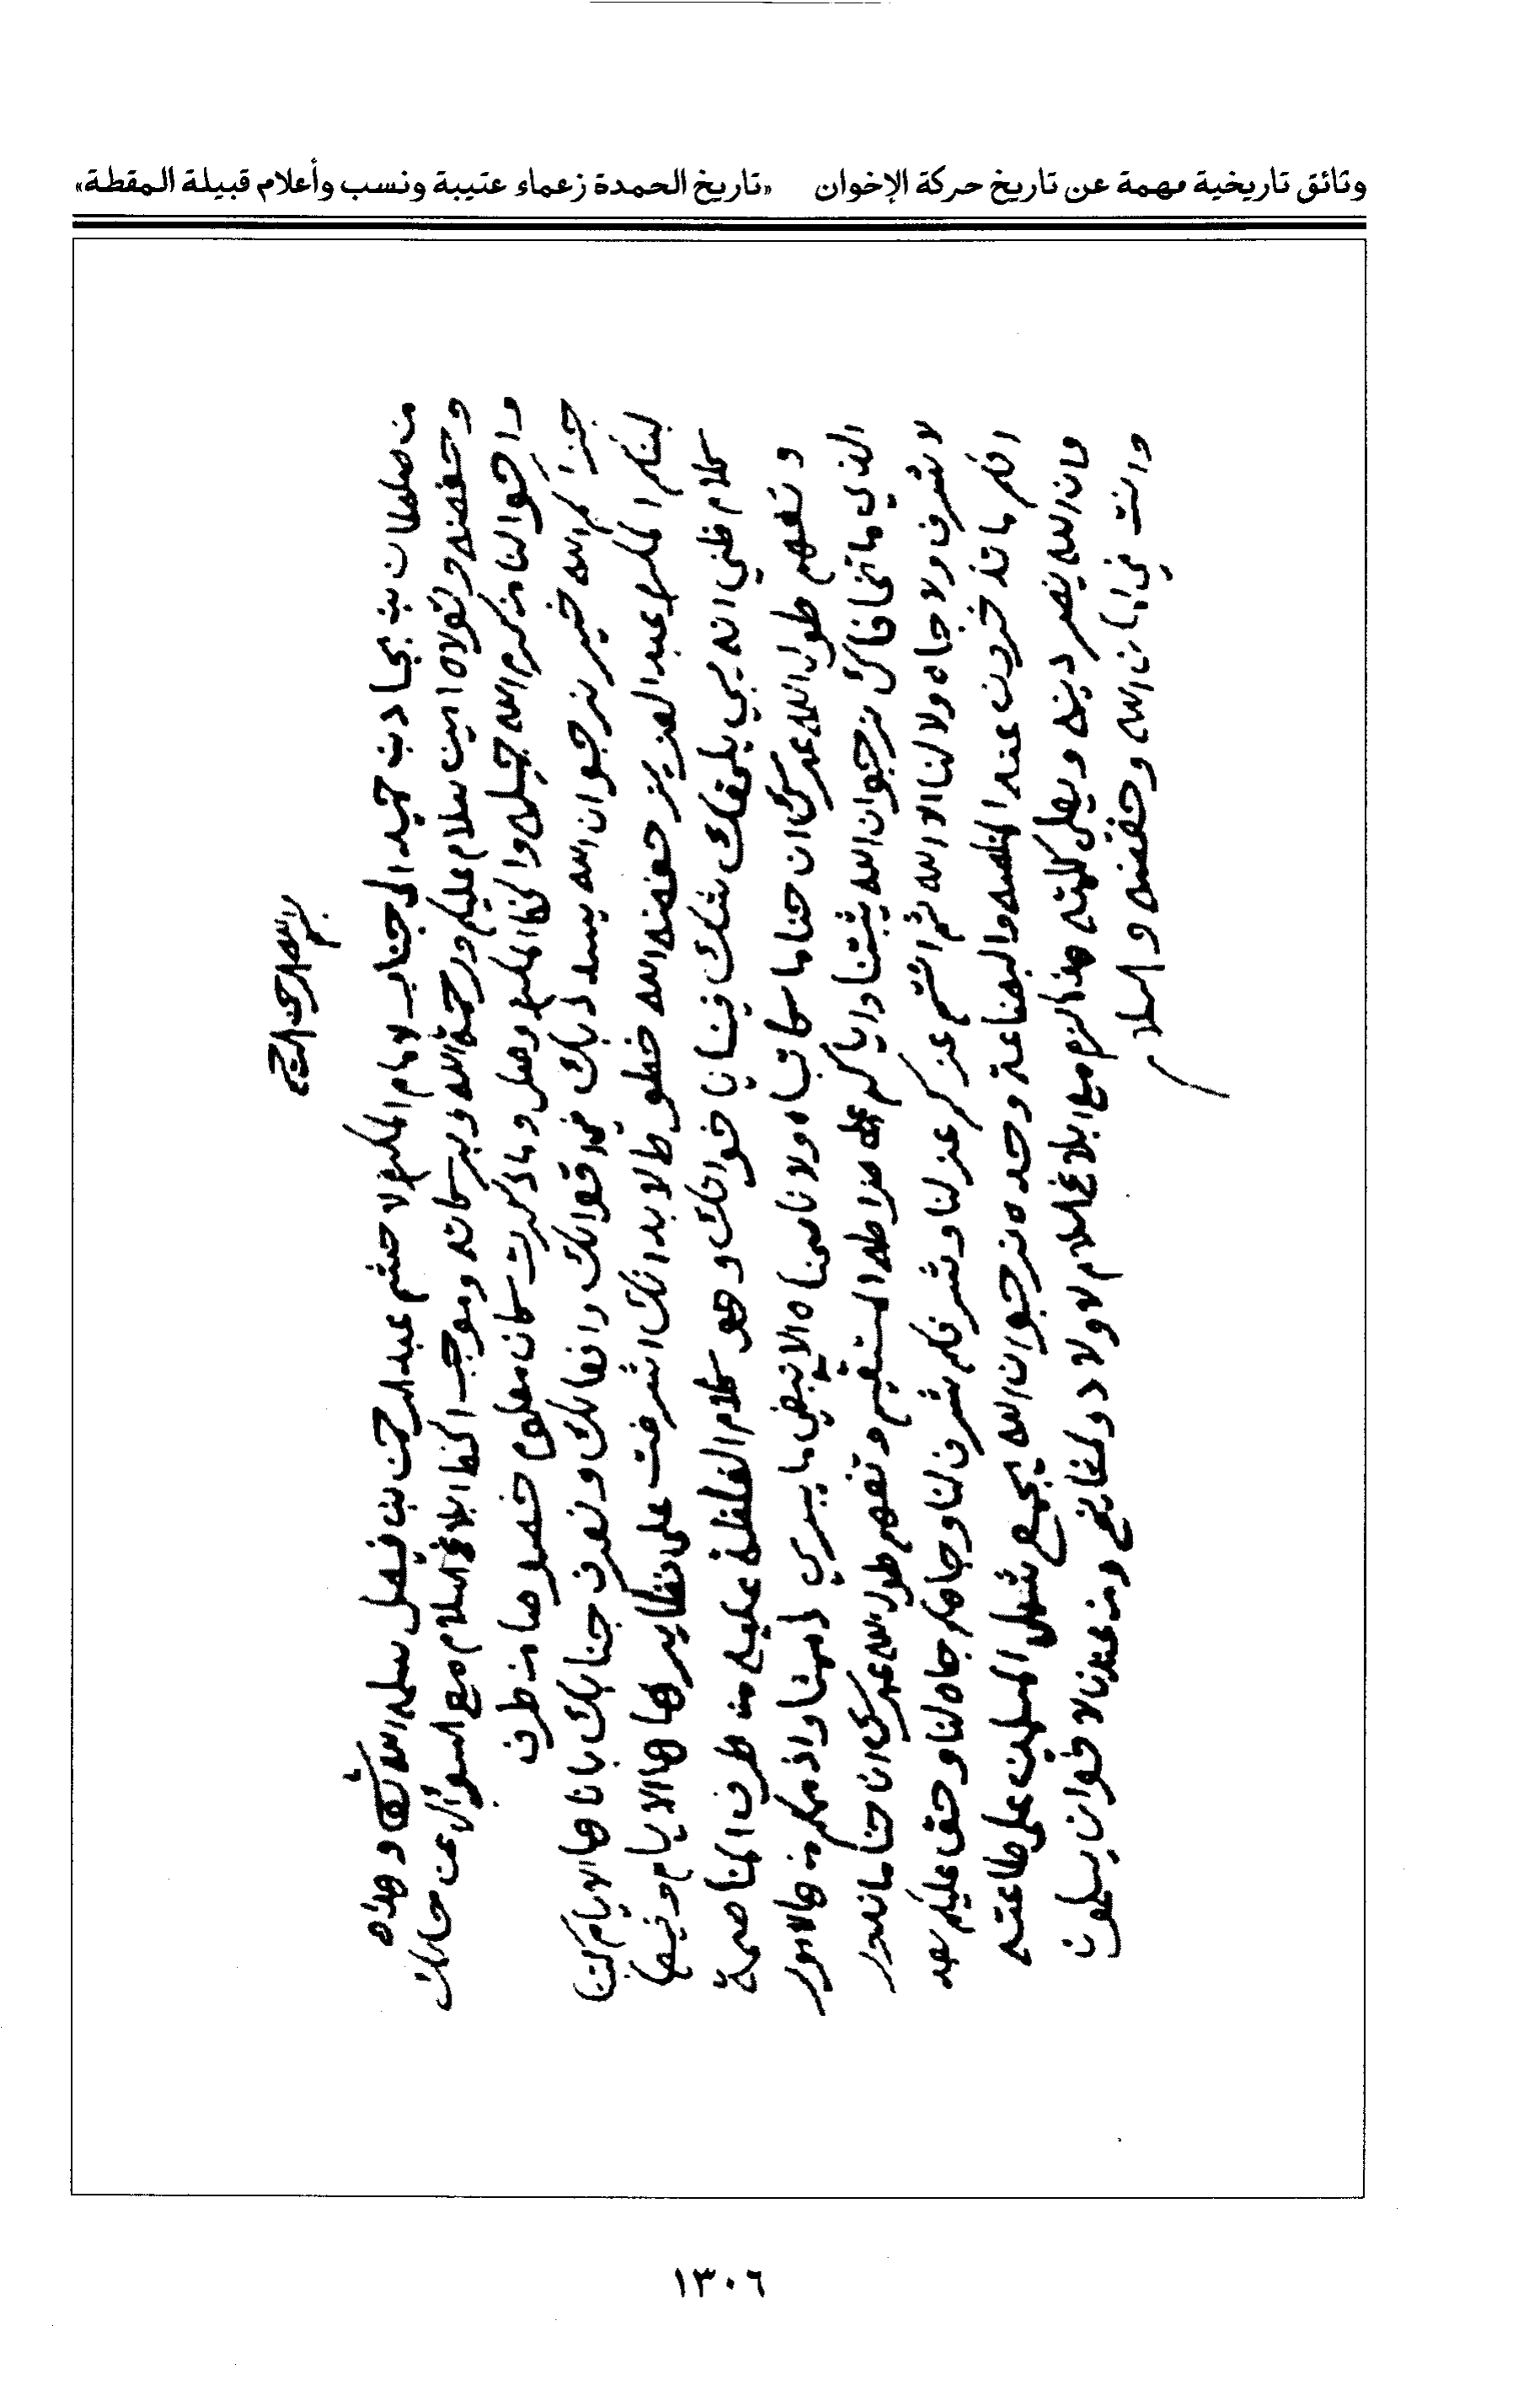 وثائق تاريخية مهمة عن تاريخ حركة الإخوان «تاريخ الحمدة زعماء عتيبة ونسب وأعلام قبيلة المقطة»
بسم الله الرحمن الرحيم
من سلطان بن بجاد بن حميد الى جناب لامام المكرم لاحشم عبدالرحمن بن فيصل سلمه الله وهداه
وحفضه وتولاه امين سلام عليكم ورحمة الله وبركاته وموجب الخط ابلاغ السلام مع السؤال عن حالك
واحوالنا من كرم الله جميله والخط المكرم وصل وما ذكرت كان معلوم خصوصا من طرف
جزاكم الله خير نرجوا ان الله يسدد بك في اقوالك وافعالك ونعرف جنابك بانا هالايام كتبنا
لبنكم المكرم عبدالعزيز حفضه الله خطوط لابد انك اشرفت على نظايرها هالايام وفيها
كلام ظني انه يبي يلحقك شك فينا يا خوانك وهو كلام الغلظة عليه من طرف المناصحة
وتفهم طول الله عمرك ان حنا ما كاتبناه ولا ناصحناه الا نبغي ما يبري ذمتنا وذمكم من هالامور
الذي ما تخافاك نرجوا ان الله يثبتنا واياكم على صراطه المستقيم وتفهم طول الله عمرك انا حنا ماندور
لا شرف ولا جاه ولا لنا الا الله ثم انتم عزكم عز لنا وشرفكم شرف لنا وجاهكم جاه لنا وحق عليكم بعد
انكم ما تذخرون عنه النصيه والبضاعة وحده نرجوا ان الله يجمع شمل المسلمين على طاعته
وان الله ينصر دينه ويعلي كلمته هذا لزم مع ابلاغ السلام لاولاد والمشايخ ومن عندنا لاخوان يسلمون
وانت في امان الله وحفضه والسلام
١٣٠٦